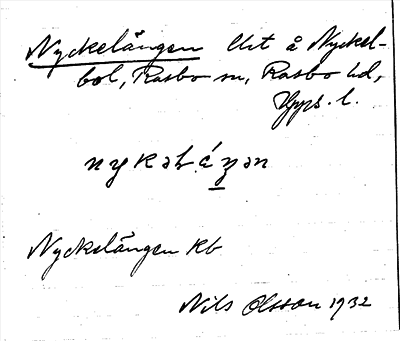 Nyckelängen Urt å Nyckel-
bol, Rasbo sn, Rasbo hd,
Upps. l.
nykəlέŋən
Nyckelängen Kb
Nils Olsson 1932